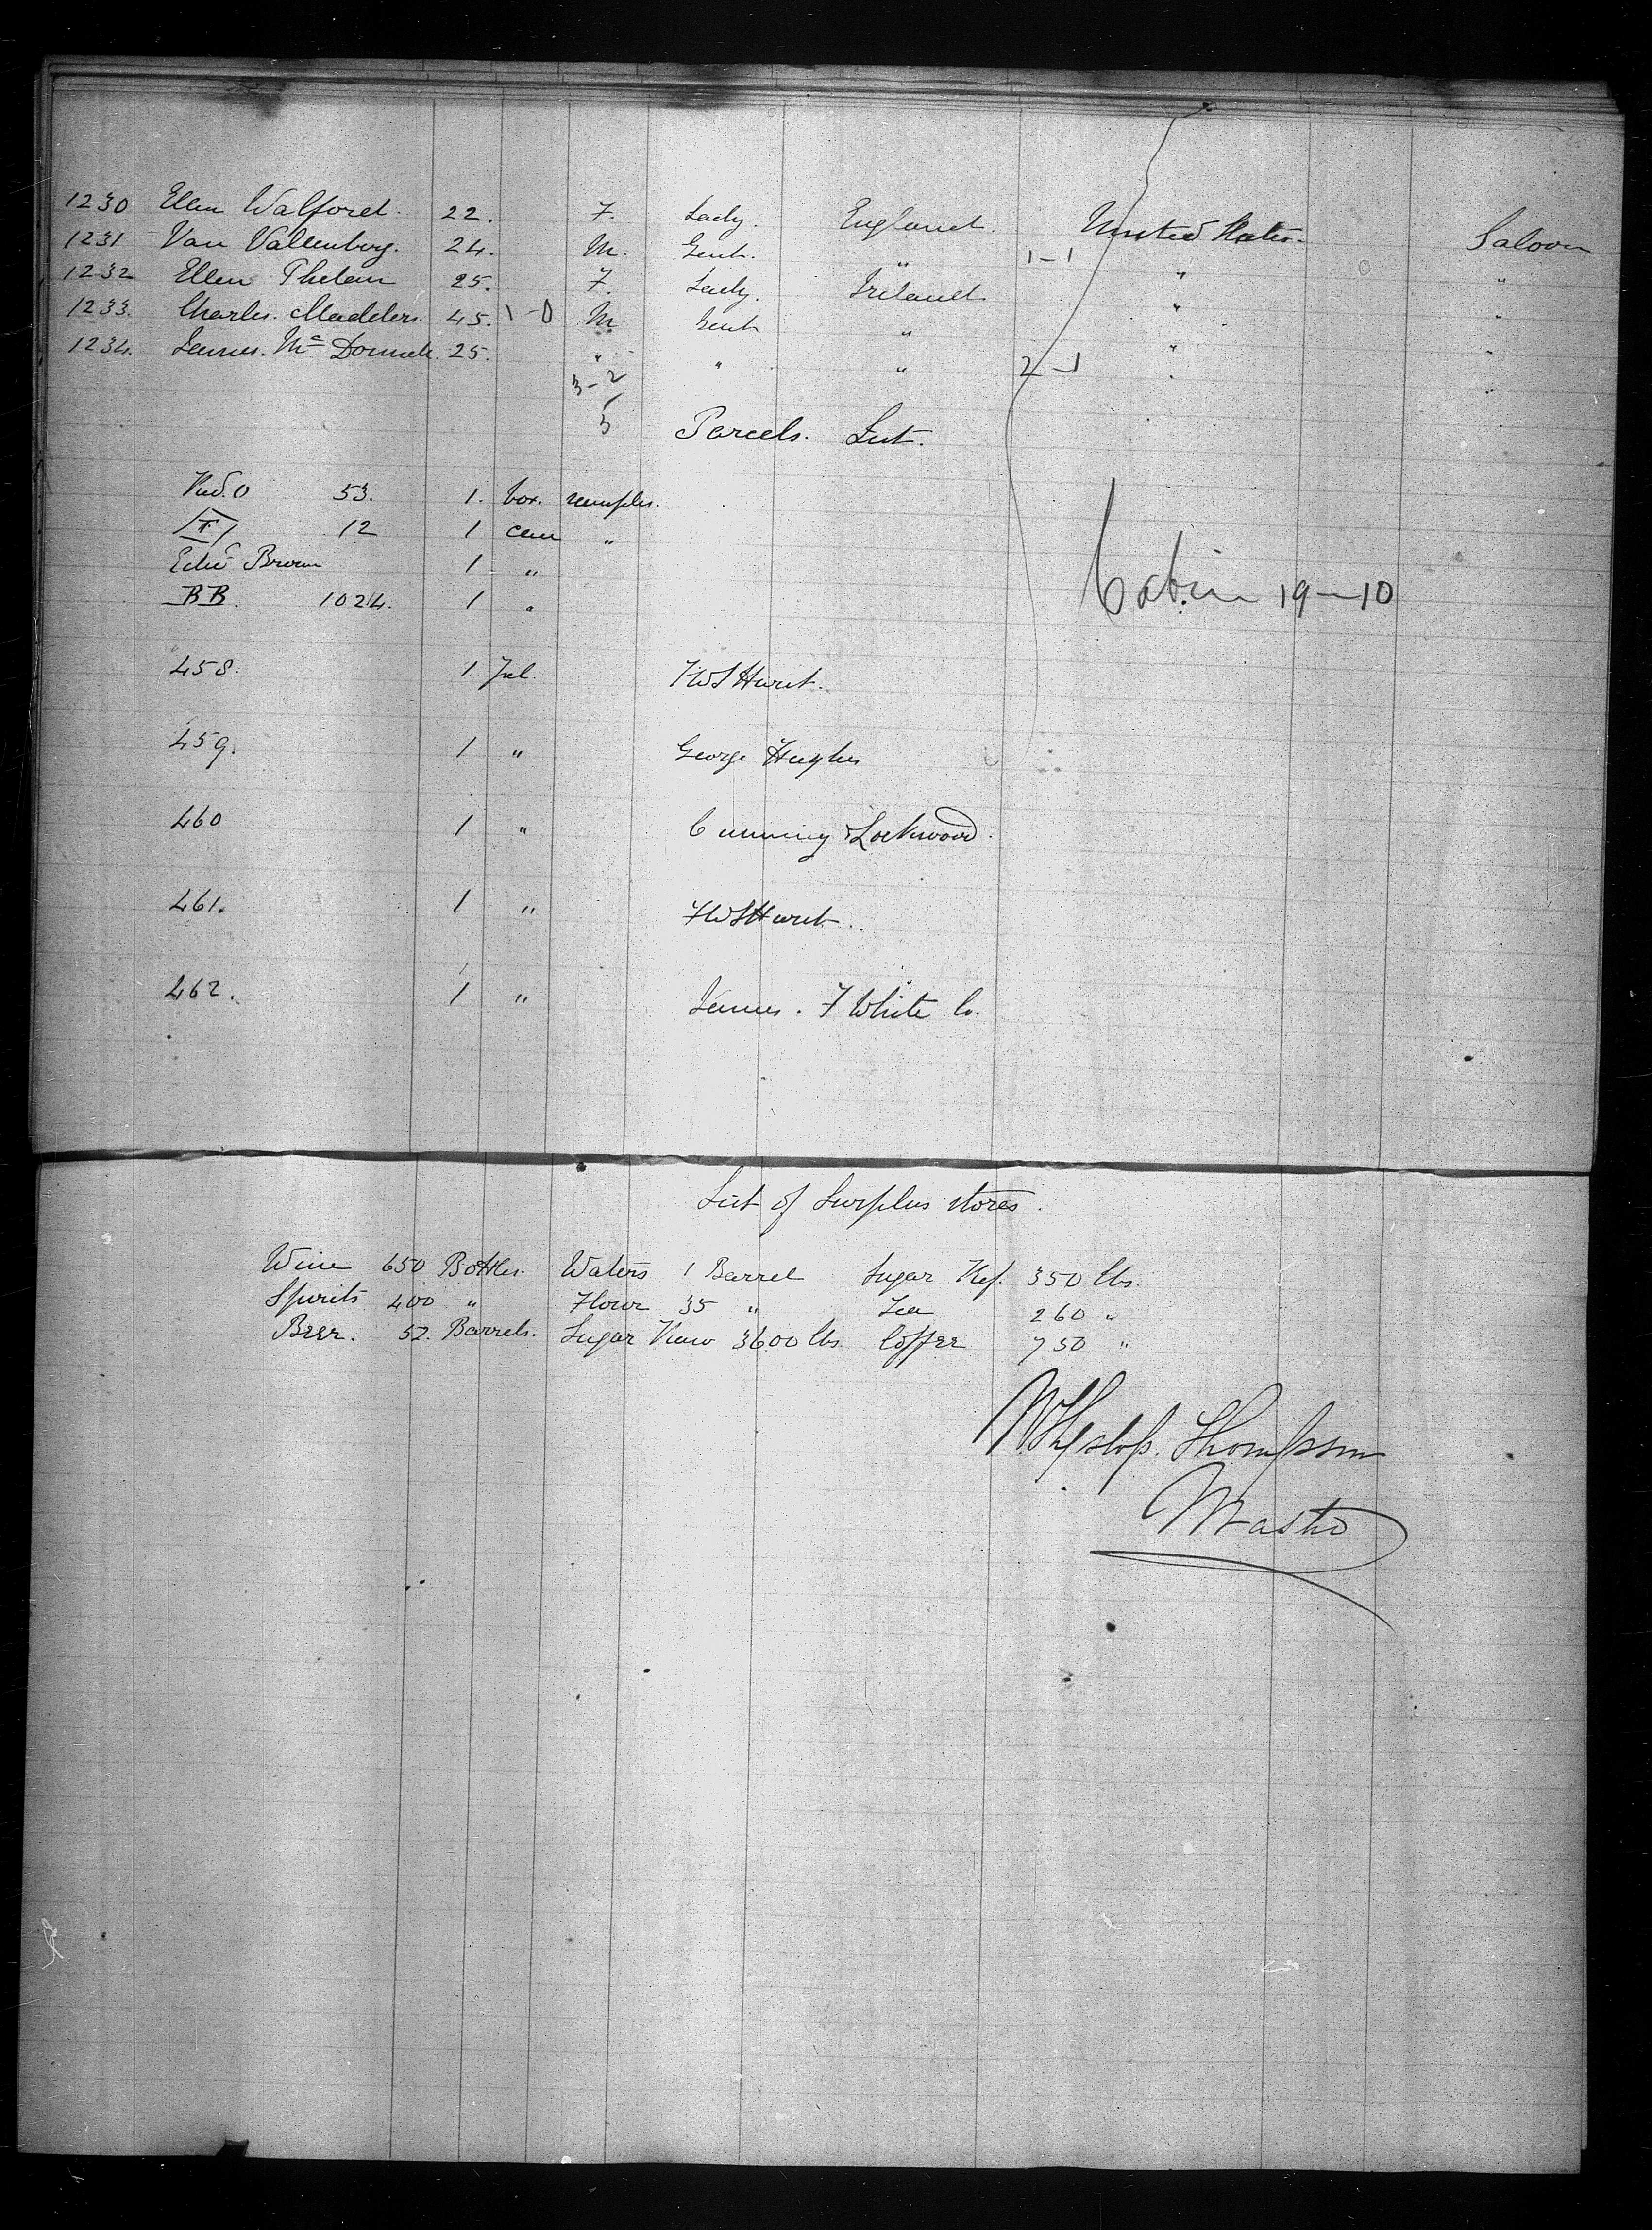 1230 Ellen Walford. 22. F. Lady. England. United States. Saloon
1231 Van Vallenberg. 24. M. Gent. " 1-1 " "
1232 Ellen Phelan 25. F. Lady. Ireland " "
1233. Charles. Madders. 45. 1-0 M Gent " " "
1234. James. Mc Donnell. 25. " " " 2-1 " "
3-2
5
Parcels. List.
53. 1. box. samples.
12 1 case "
Edwd Brown 1 "
BB. 1024. 1 "
Cabin 19-10
458. 1 Pcl. FWS Hurst.
459. 1 " George Hughes
460 1 " Cumming & Lockwood.
461. 1 " FWS Hurst.
462. 1 " James. F White Co.
List of Surplus Stores.
Wine 650 Bottles. Waters 1 Barrel Sugar Ref. 350 lbs.
Spirits 400 " Flour 35 " Tea 260 "
Beer. 52. Barrels. Sugar Raw 3600 lbs. Coffee 750 "
W. Heslop. Thompson
Master